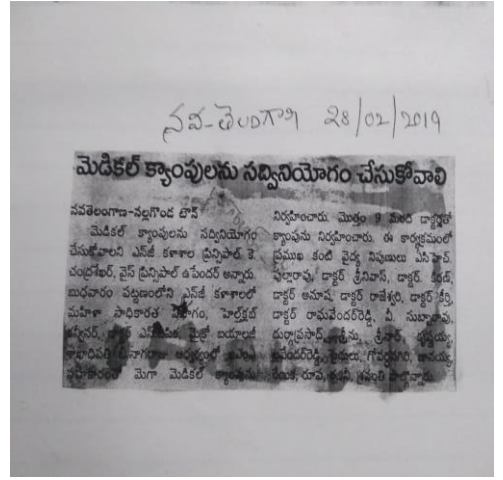 నవ-తెలంగాణ 28/02/2019
మెడికల్ క్యాంపులను సద్వినియోగం చేసుకోవాలి
నవతెలంగాణ-నల్లగొండ టౌన్
మెడికల్ క్యాంపులను సద్వినియోగం
చేసుకోవాలని ఎన్‌జీ కళాశాల ప్రిన్సిపాల్ కె.
చంద్రశేఖర్, వైస్ ప్రిన్సిపాల్ ఉపేందర్ అన్నారు.
బుధవారం పట్టణంలోని ఎన్‌జీ కళాశాలలో
మహిళా సాధికారత విభాగం, హెల్త్‌క్లబ్
మైక్రో బయాలజీ
మెగా మెడికల్ క్యాంపును
నిర్వహించారు. మొత్తం 9 మంది డాక్టర్లతో
క్యాంపును నిర్వహించారు. ఈ కార్యక్రమంలో
ప్రముఖ కంటి వైద్య నిపుణులు ఏసిహెచ్.
పుల్లారావు, డాక్టర్ శ్రీనివాస్, డాక్టర్ కిరణ్,
డాక్టర్ అనూష, డాక్టర్ రాజేశ్వరి, డాక్టర్ కీర్తి,
డాక్టర్ రాఘవేందర్‌రెడ్డి, వి. సుబ్బారావు,
దుర్గాప్రసాద్
పాల్గొన్నారు.